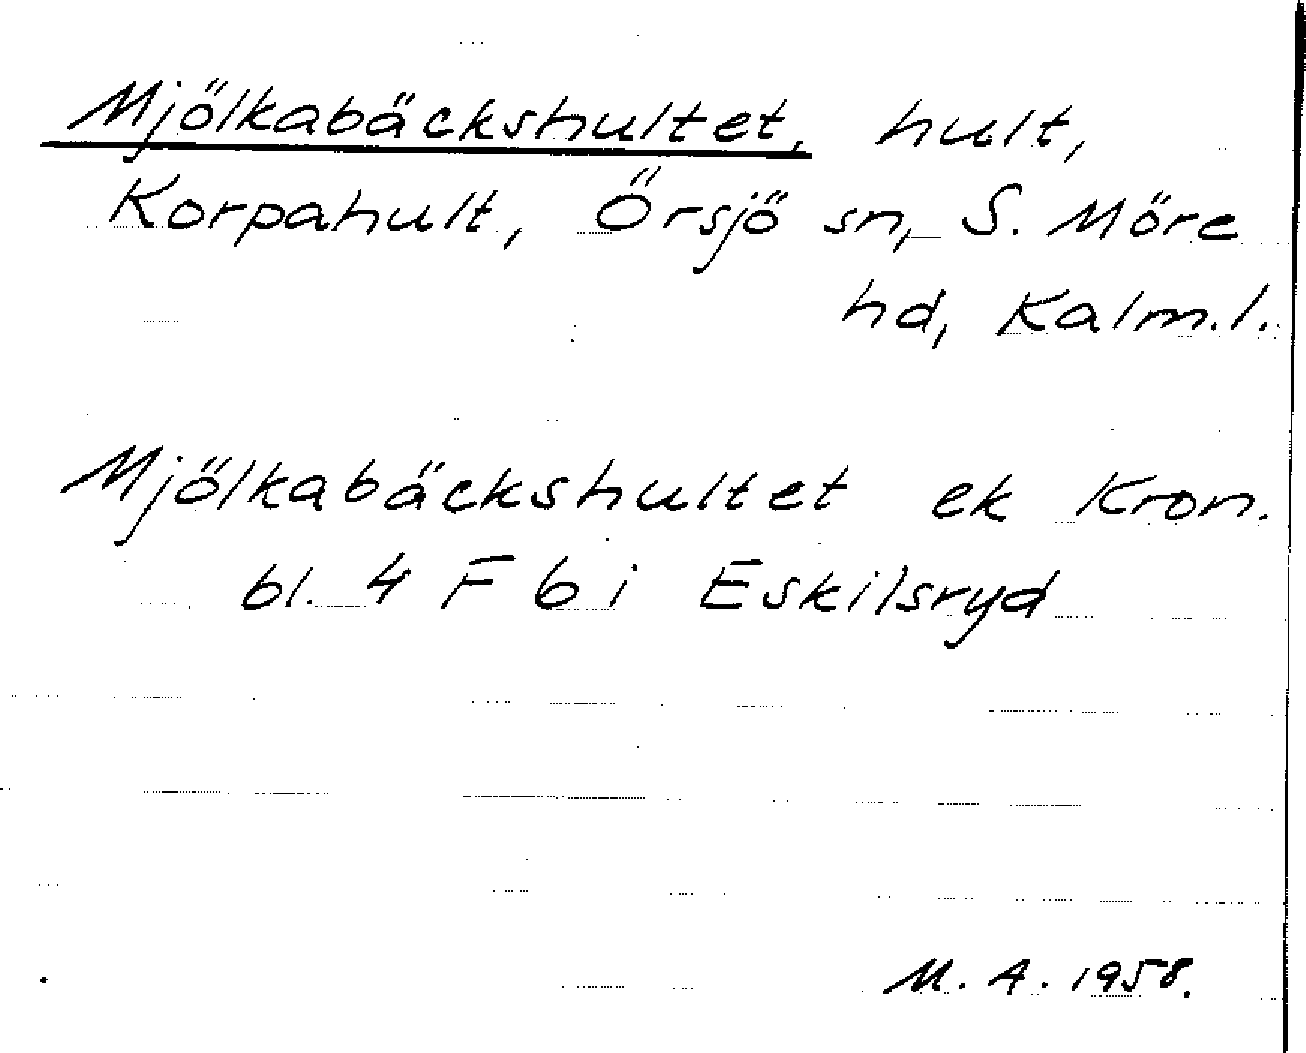 Mjölkabäckshultet, hult,
Korpahult, Örsjö sn, S. Möre
hd, Kalm.l.
Mjölkabäckshultet ek Kron.
bl. 4 F b i Eskilsryd
M. A. 1958.